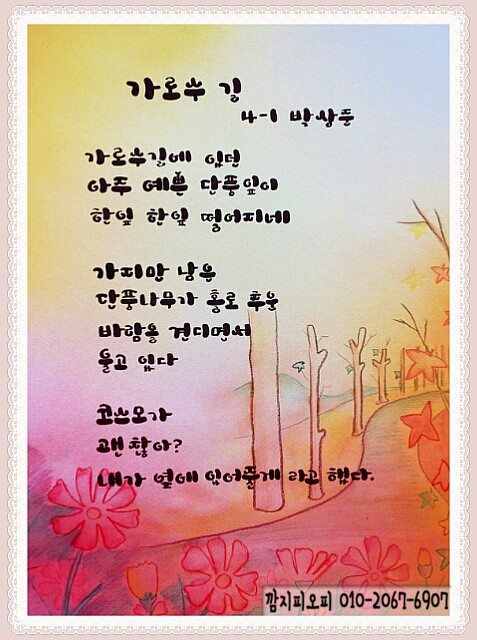 가로수 길
4-1 박상준
가로수길에 있던
아주 예쁜 단풍잎이
한잎 한잎 떨어지네
가지만 남은
단풍나무가 홀로 추운
바람을 견디면서
울고 있다
코스모가
괜찮아?
내가 옆에 있어줄게 라고 했다.
깜지피오피 010-2067-6907